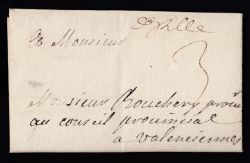 Lille
A Monsieur
3
Monsieur Bouchery procu
au conseil provincial
a valenciennes